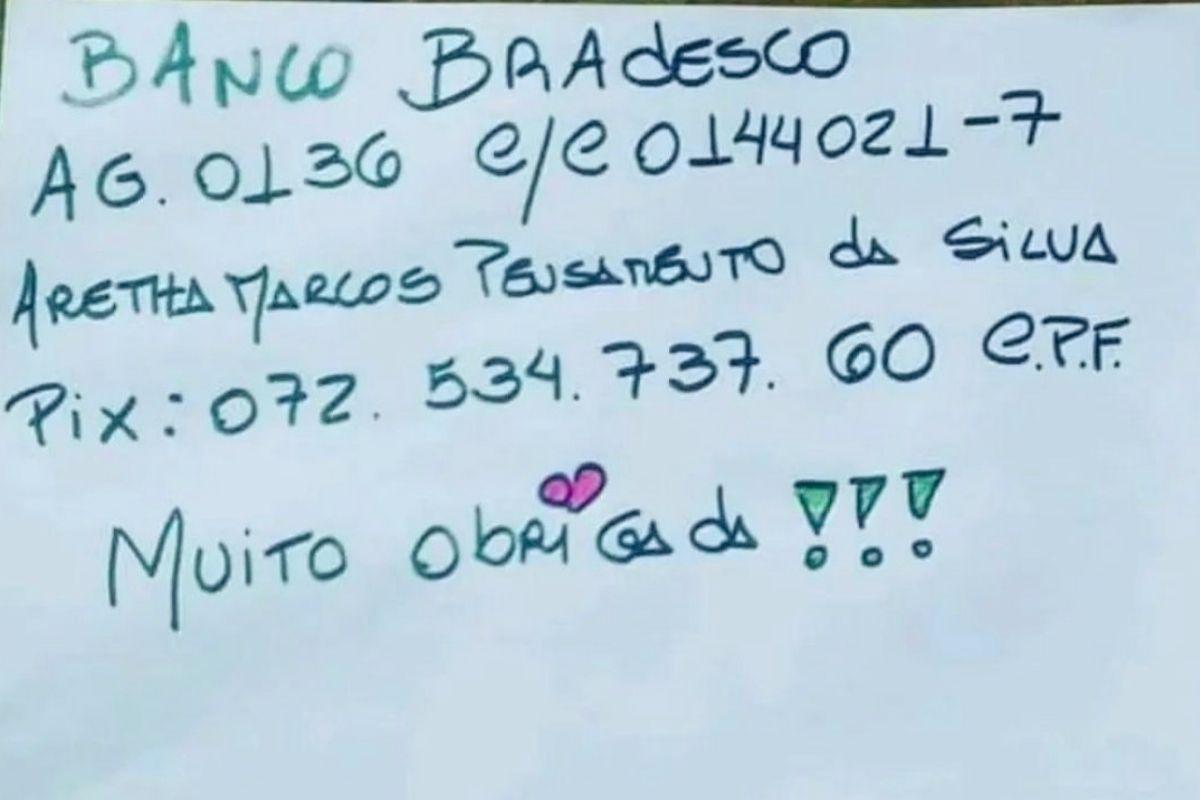 BANCO BRAdESCO
AG. 0136 C/C 0144021-7
ARETHA MARCOS PENSAMENTO da SiLVA
Pix: 072. 534. 737. 60 C.P.F.
MUiTO ObRiGAdA !!!